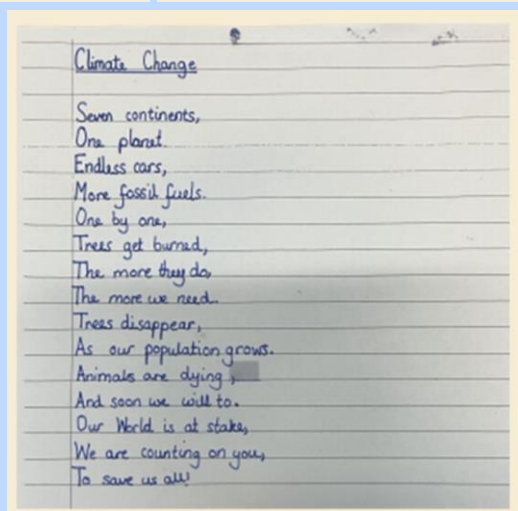 Climate Change
Seven continents,
One planet.
Endless cars,
More fossil fuels.
One by one,
Trees get burned,
The more they do,
The more we need.
Trees disappear,
As our population grows.
Animals are dying,
And soon we will to.
Our World is at stake,
We are counting on you,
To save us all!